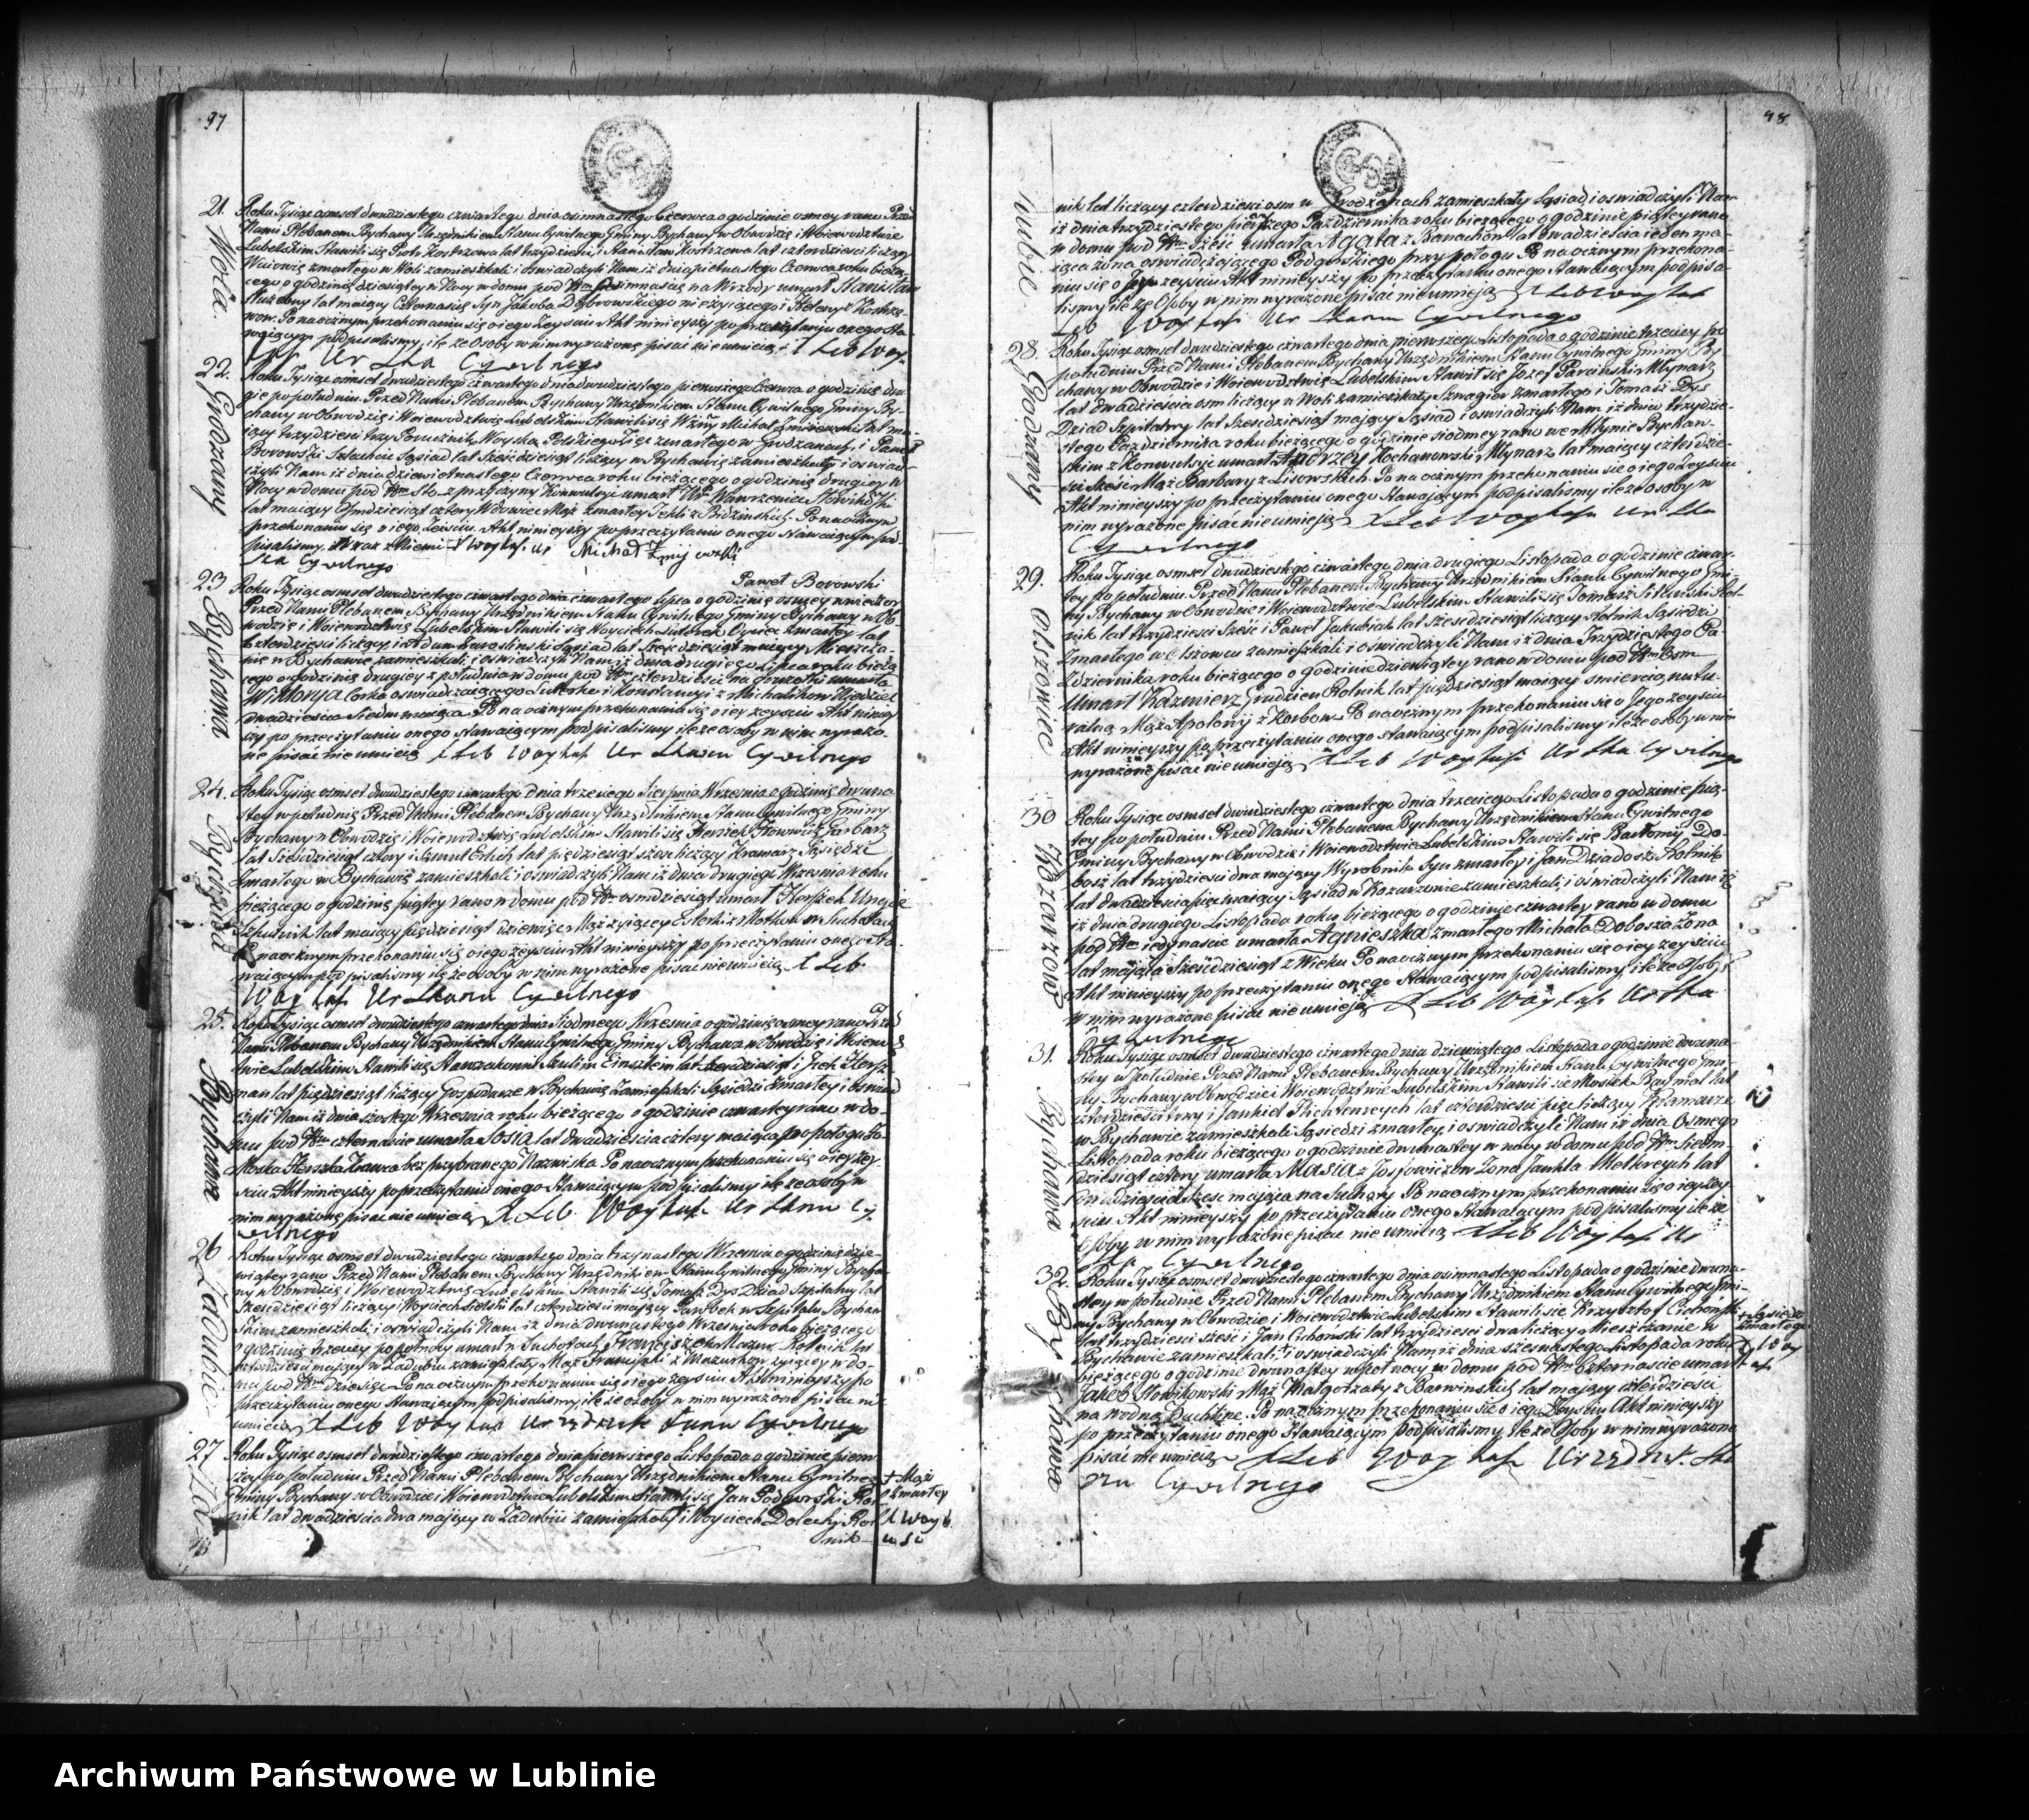 97
21. Wola
Roku Tysiąc osmset dwudziestego czwartego dnia osimnastego Czerwca o godzinie osmey rano Przed
Nami Plebanem Bychawy Urzędnikiem Stanu Cywilnego Gminy Bychawy w Obwodzie i Woiewodztwie
Lubelskim Stawili się Piotr Kostrzewa lat trzydzieści, i Stanisław Kostrzewa lat czterdzieści liczący
zmarłego w Woli zamieszkali i oświadczyli Nam iż dnia piętnastego Czerwca roku bieżą-
cego o godzinie dziesiątey w Nocy w domu pod Nrem na Wrzody umarł Stanisław
Służebny lat maiący Czternaście Syn Jakoba Dąbrowskiego nieżyiącego i Heleny z Kostrze-
wow. Po naocznym przekonaniu się o iego Zeyściu Akt ninieyszy po przeczytaniu onego Sta-
waiącym podpisaliśmy, ile że Osoby w nim wyrażone pisać nie umieią X Leb Woy-
Ur Sta Cywilnego
22. Grodzany
Roku Tysiąc osmset dwudziestego czwartego dnia dwudziestego pierwszego Czerwca o godzinie dru-
giey po południu Przed Nami Plebanem Bychawy Urzędnikiem Stanu Cywilnego Gminy By-
chawy w Obwodzie i Woiewodztwie Lubelskim Stawili się Michał lat ma-
iący trzydzieści trzy Porucznik Woyska Polskiego zmarłego w Grodzanach, i Paweł
Borowski Szlachcic Sąsiad lat Sześćdziesiąt liczący w Bychawie zamieszkały i oświad-
czyli Nam iż dnia dziewiętnastego Czerwca roku bieżącego o godzinie drugiey w
Nocy w domu pod Nrem z przyczyny Konwulsyi umarł Wawrzeniec
lat maiący Ośmdziesiąt cztery Wdowiec Mąż zmarłey Tekli z Po naocznym
przekonaniu się o iego Zeiściu Akt ninieyszy po przeczytaniu onego Stawaiącym pod-
pisaliśmy wraz z Niemi X Woytaś Ur Michał
Sta Cywilnego
Paweł Borowski
23 Bychawa
Roku Tysiąc osmset dwudziestego czwartego dnia czwartego Lipca o godzinie osmey wieczor
Przed Nami Plebanem Bychawy Urzędnikiem Stanu Cywilnego Gminy Bychawy w Ob-
wodzie i Woiewodztwie Lubelskim Stawili się Woyciech Oyciec zmarłey lat
czterdzieści liczący, i Adam Sąsiad lat Sześćdziesiąt maiący Mieszcza-
nie w Bychawie zamieszkali, i oświadczyli Nam iż dnia drugiego Lipca roku bieżą-
cego o godzinie drugiey z południa w domu pod Nrem czterdzieści na umarła
Wiktorya Corka oświadczaiącego i Konstancyi z Michalskow Niedziel
dwadzieścia Siedm maiąca. Po naocznym przekonaniu się o iey zeyściu Akt niniey-
szy po przeczytaniu onego stawaiącym podpisaliśmy ile że osoby w nim wyrażo-
ne pisać nie umieią X Leb Woytaś Ur Stanu Cywilnego
24. Bychawa
Roku Tysiąc osmset dwudziestego czwartego dnia trzeciego Sierpnia Września o godzinie dwuna-
stey w południe Przed Nami Plebanem Bychawy Urzędnikiem Stanu Cywilnego Gminy
Bychawy w Obwodzie i Woiewodztwie Lubelskim Stawili się Herszek Garbarz
lat Sześćdziesiąt cztery i Szmul Erlich lat pięćdziesiąt sześć liczący Kramarz Sąsiedzi
Zmarłego w Bychawie zamieszkali i oświadczyli Nam iż dnia drugiego Września roku
bieżącego o godzinie piątey rano w domu pod Nrem osmdziesiąt umarł Herszek
lat maiący pięćdziesiąt dziewięć Mąż żyiącey Esterki z na Suchotach
Po naocznym przekonaniu się o iego zeyściu Akt ninieyszy po przeczytaniu onego Sta-
waiącym podpisaliśmy ile że osoby w nim wyrażone pisać nie umieią X Leb
Woytaś Ur Stanu Cywilnego
25. Bychawa
Roku Tysiąc osmset dwudziestego czwartego dnia Siodmego Września o godzinie osmey rano Przed
Nami Plebanem Bychawy Urzędnikiem Stanu Cywilnego Gminy Bychawa w Obwodzie i Woiewodz-
twie Lubelskim Stawili się Starozakonni Szulim lat czterdzieści i Jcek Hersz-
man lat pięćdziesiąt liczący Gospodarze w Bychawie Zamieszkali Sąsiedzi Zmarłey i oświad-
czyli Nam iż dnia szostego Września roku bieżącego o godzinie czwartey rano w do-
mu pod Nrem czternaście umarła Sosia lat dwadzieścia cztery maiąca po połogu Zo-
Moska Herszka bez przybranego Nazwiska Po naocznym przekonaniu się o iey zey-
ściu Akt ninieyszy po przeczytaniu onego Stawaiącym podpisaliśmy ile że osoby w
nim wyrażone pisać nie umieią X Leb Woytaś Ur Stanu Cy-
wilnego
26 Zadubie
Roku Tysiąc osmset dwudziestego czwartego dnia trzynastego Września o godzinie dzie-
wiątey rano Przed Nami Plebanem Bychawy Urzędnikiem Stanu Cywilnego Gminy Bycha-
wy w Obwodzie i Woiewodztwie Lubelskim Stawili się Tomasz Dys Dziad Szpitalny lat
Sześćdziesiąt liczący i Woyciech lat czterdzieści maiący Parobek w Szpitalu Bychaw-
skim zamieszkali, i oświadczyli Nam iż dnia dwunastego Września roku bieżącego
o godzinie trzeciey po połnocy umarł w Suchotach Franciszek Mazur Rolnik lat
czterdzieści maiący w Zadubiu zamieszkały Mąż Franciszki z Mazurkow żyiącey w do-
mu pod Nrem dziesięć. Po naocznym przekonaniu się o iego zeyściu Akt ninieyszy po
przeczytaniu onego Stawaiącym podpisaliśmy ile że osoby w nim wyrażone pisać nie
umieią X Leb Woytaś Urzędnik Stanu Cywilnego
27 Za-
Roku Tysiąc osmset dwudziestego czwartego dnia pierwszego Listopada o godzinie pierw-
szey po południu Przed Nami Plebanem Bychawy Urzędnikiem Stanu Cywilnego
Gminy Bychawy w Obwodzie i Woiewodztwie Lubelskim Stawili się Jan Podgorski Rol-
nik lat dwadzieścia dwa maiący w Zadubiu zamieszkały i Woyciech Dolecki Rol-
nik
+ Mąż
zmarłey
X Woy
98
dubie
nik lat liczący czterdzieści osm w Grodzanach zamieszkały Sąsiad i oświadczyli Nam
iż dnia trzydziestego pierwszego Października roku bieżącego o godzinie piątey rano
w domu pod Nrem Sześć umarła Agata z Banachow lat dwadzieścia ieden ma-
iąca żona oświadczaiącego Podgorskiego przy połogu Po naocznym przekona-
niu się o Jey zeyściu Akt ninieyszy po przeczytaniu onego Stawaiącym podpisa-
liśmy ile że Osoby w nim wyrażone pisać nie umieią X Leb Woytaś
Leb Woytaś Ur Stanu Cywilnego
28. Grodzany
Roku Tysiąc osmset dwudziestego czwartego dnia pierwszego Listopada o godzinie trzeciey po
południu Przed Nami Plebanem Bychawy Urzędnikiem Stanu Cywilnego Gminy By-
chawy w Obwodzie i Woiewodztwie Lubelskim Stawił się Jozef Młynarz
lat dwadzieścia osm liczący w Woli zamieszkały Szwagier zmarłego i Tomasz Dys
Dziad Szpitalny lat Sześćdziesiąt maiący Sąsiad i oświadczyli Nam iż dnia trzydzie-
stego Października roku bieżącego o godzinie siodmey rano we Młynie Bychaw-
skim z Konwulsyi umarł Andrzey Kochanowski Młynarz lat maiący czterdzie-
ści sześć Mąż Barbary z Lisowskich Po naocznym przekonaniu się o iego Zeyściu
Akt ninieyszy po przeczytaniu onego stawaiącym podpisaliśmy ile że osoby w
nim wyrażone pisać nie umieią X Leb Woytaś Ur Sta
Cywilnego
29. Olszowiec
Roku Tysiąc osmset dwudziestego czwartego dnia drugiego Listopada o godzinie czwar-
tey po południu Przed Nami Plebanem Bychawy Urzędnikiem Stanu Cywilnego Gmi-
ny Bychawy w Obwodzie i Woiewodztwie Lubelskim Stawili się Tomasz Rol-
nik lat trzydzieści Sześć i Paweł Jakubiak lat Sześćdziesiąt liczący Rolnik Sąsiedzi
Zmarłego w Olszowcu zamieszkali i oświadczyli Nam iż dnia Trzydziestego Pa-
ździernika roku bieżącego o godzinie dziewiątey rano w domu pod Nrem Osm
Umarł Kazmierz Grudzien Rolnik lat pięćdziesiąt maiący śmiercią natu-
ralną Mąż Apolonij z Korbow Po naocznym przekonaniu się o Jego zeyściu
Akt ninieyszy po przeczytaniu onego stawaiącym podpisaliśmy ile że osoby w nim
wyrażone pisać nie umieią X Leb Woytaś Ur Sta Cywilnego
30 Kozarzow
Roku Tysiąc osmset dwudziestego czwartego dnia trzeciego Listopada o godzinie pią-
tey po południu Przed Nami Plebanem Bychawy Urzędnikiem Stanu Cywilnego
Gminy Bychawy w Obwodzie i Woiewodztwie Lubelskim Stawili się Bartłomiy Do-
bosz lat trzydzieści dwa maiący Wyrobnik Syn zmarłey i Jan Dziadosz Rolnik
lat dwadzieścia pięć maiący Sąsiad w Kozarzowie zamieszkali, i oświadczyli Nam iż
iż dnia drugiego Listopada roku bieżącego o godzinie czwartey rano w domu
pod Nrem iedynaście umarła Agnieszka zmarłego Michała Dobosza Zona
lat maiąca Sześćdziesiąt z Wieku Po naocznym przekonaniu się o iey zeyściu
Akt ninieyszy po przeczytaniu onego Stawaiącym podpisaliśmy ile że Osoby
w nim wyrażone pisać nie umieią X Leb Woytaś Ur Sta
Cywilnego
31. Bychawa
Roku Tysiąc osmset dwudziestego czwartego dnia dziewiątego Listopada o godzinie dwuna-
stey w południe Przed Nami Plebanem Bychawy Urzędnikiem Stanu Cywilnego Gmi-
ny Bychawy w Obwodzie i Woiewodztwie Lubelskim Stawili się Moszek lat
czterdzieści trzy i Jankiel lat czterdzieści pięć liczący Kramarze
w Bychawie zamieszkali Sąsiedzi zmarłey, i oświadczyli Nam iż dnia Osmego
Listopada roku bieżącego o godzinie dwunastey w nocy w domu pod Nrem Siedm-
dziesiąt cztery umarła Masia z Josfowiczow Zona Jankla lat
dwadzieścia Sześć maiąca na Suchoty Po naocznym przekonaniu się o iey Zey-
ściu Akt ninieyszy po przeczytaniu onego Stawaiącym podpisaliśmy ile że
Osoby w nim wyrażone pisać nie umieią X Leb Woytaś Ur
Sta Cywilnego
32. Bychawa
Roku Tysiąc osmset dwudziestego czwartego dnia osimnastego Listopada o godzinie dwuna-
stey w południe Przed Nami Plebanem Bychawy Urzędnikiem Stanu Cywilnego Gmi-
ny Bychawy w Obwodzie i Woiewodztwie Lubelskim Stawili się Krzysztof Cichoński
lat trzydzieści sześć i Jan Cichonski lat trzydzieści dwa liczący Mieszczanie w
Bychawie zamieszkali, + i oświadczyli Nam iż dnia szesnastego Listopada roku
bieżącego o godzinie dwunastey w połnocy w domu pod Nrem Czternaście umarł
Jakob Nowikowski Mąż Małgorzaty z Barwinskich lat maiący czterdzieści
na wodną Puchlinę. Po naocznym przekonaniu się o iego Zeyściu Akt ninieyszy
po przeczytaniu onego Stawaiącym podpisaliśmy ile że Osoby w nim wyrażone
pisać nie umieią X Leb Woytaś Urzędnik Sta
nu Cywilnego
+ Sąsiedzi
zmarłego
X Woy
taś
Archiwum Państwowe w Lublinie